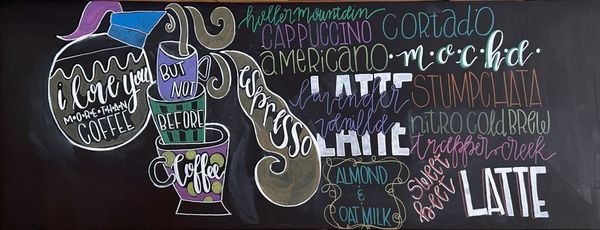 i love you
MORE THAN
COFFEE
BUT
NOT
BEFORE
Coffee
ESPRESSO
holler mountain
CAPPUCCINO
americano
LATTE
lavender
vanilla
LATTE
ALMOND
&
OAT MILK
CORTADO
mocha
STUMPCHATA
nitro COLD BREW
trapper creek
Sweet
Beet
LATTE